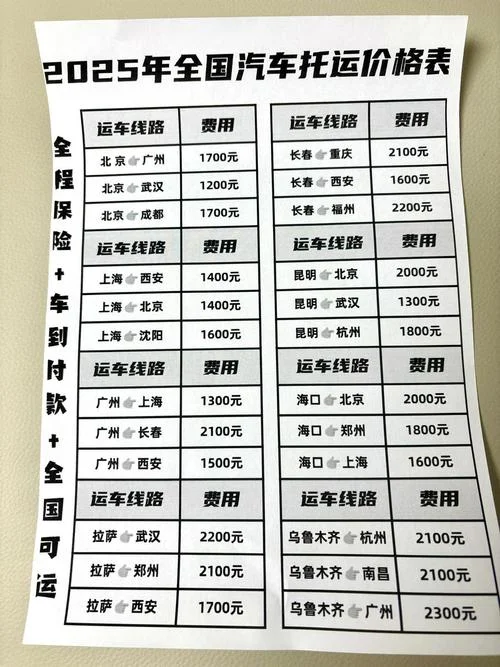 2025年全国汽车托运价格表
全程保险+车到付款+全国可运
运车线路 费用
北京👉广州 1700元
北京👉武汉 1200元
北京👉成都 1700元
运车线路 费用
上海👉西安 1400元
上海👉北京 1400元
上海👉沈阳 1600元
运车线路 费用
广州👉上海 1300元
广州👉长春 2100元
广州👉西安 1500元
运车线路 费用
拉萨👉武汉 2200元
拉萨👉郑州 2100元
拉萨👉西安 1700元
运车线路 费用
长春👉重庆 2100元
长春👉西安 1600元
长春👉福州 2200元
运车线路 费用
昆明👉北京 2000元
昆明👉武汉 1300元
昆明👉杭州 1800元
运车线路 费用
海口👉北京 2000元
海口👉郑州 1800元
海口👉上海 1600元
运车线路 费用
乌鲁木齐👉杭州 2100元
乌鲁木齐👉南昌 2100元
乌鲁木齐👉广州 2300元